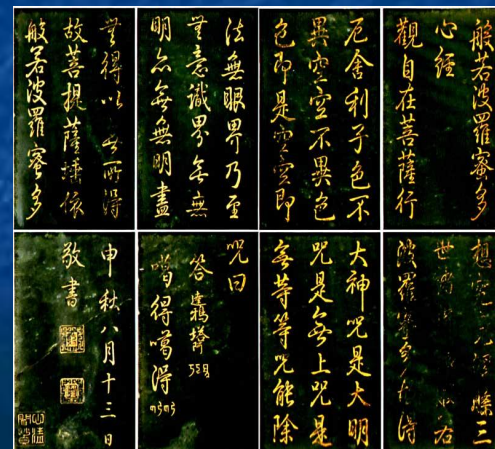 般若波羅蜜多
心經
觀自在菩薩行
厄舍利子色不
異空空不異色
色即是空空即
法無眼界乃至
無意識界無無
明亦無無明盡
無得以無所得
故菩提薩埵依
般若波羅蜜多
想究竟涅槃三
世諸若
波羅蜜多故得
大神咒是大明
咒是無上咒是
無等等咒能除
咒曰
答
得噶得
申秋八月十三日
敬書